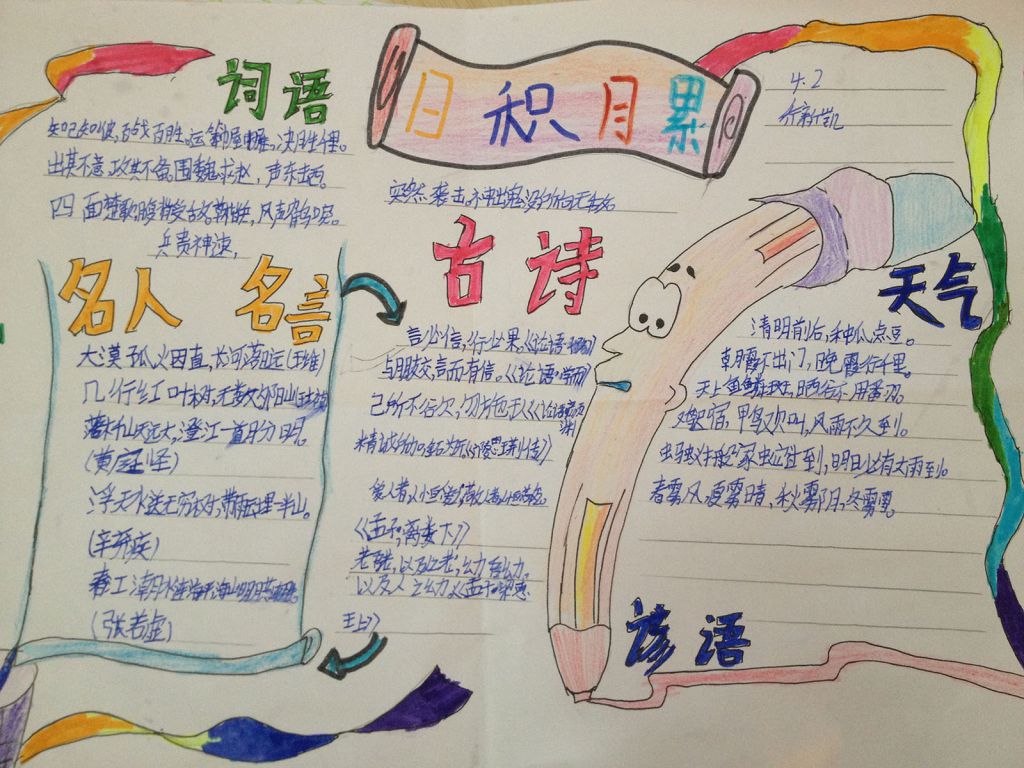 日积月累
4.2
词语
知己知彼,百战百胜。运筹帷幄,决胜千里。
出其不意,攻其不备。围魏求赵,声东击西。
四面楚歌,风声鹤唳。
兵贵神速,
突然袭击,神出鬼没,所向无
名人名言
大漠孤火因直,长河落日远(王维)
几行红叶树,无数夕阳山(王士祯)
落木千山天远大,澄江一道月分明。
(黄庭坚)
浮天水送无穷树,带雨云埋一半山。
(辛弃疾)
春江潮水连海平,海上明月共潮生。
(张若虚)
古诗
言必信,行必果,《论语·子路》
与朋友交,言而有信。《论语·学而》
己所不欲,勿施于人《论语·颜渊》
精诚所加,金石为开
爱人者人恒爱之,敬人者人恒敬之。
《孟子·离娄下》
老吾老,以及人之老,幼吾幼,
以及人之幼《孟子·梁惠
王上》
天气
清明前后,种瓜点豆。
朝霞不出门,晚霞行千里。
天上鱼鳞斑,晒谷不用番羽。
鸡迟宿,鸭欢叫,风雨不久到。
蚂蚁搬家虫蛀到,明日必有大雨到。
春雾风,夏雾晴,秋雾阴,冬雾雪。
谚语